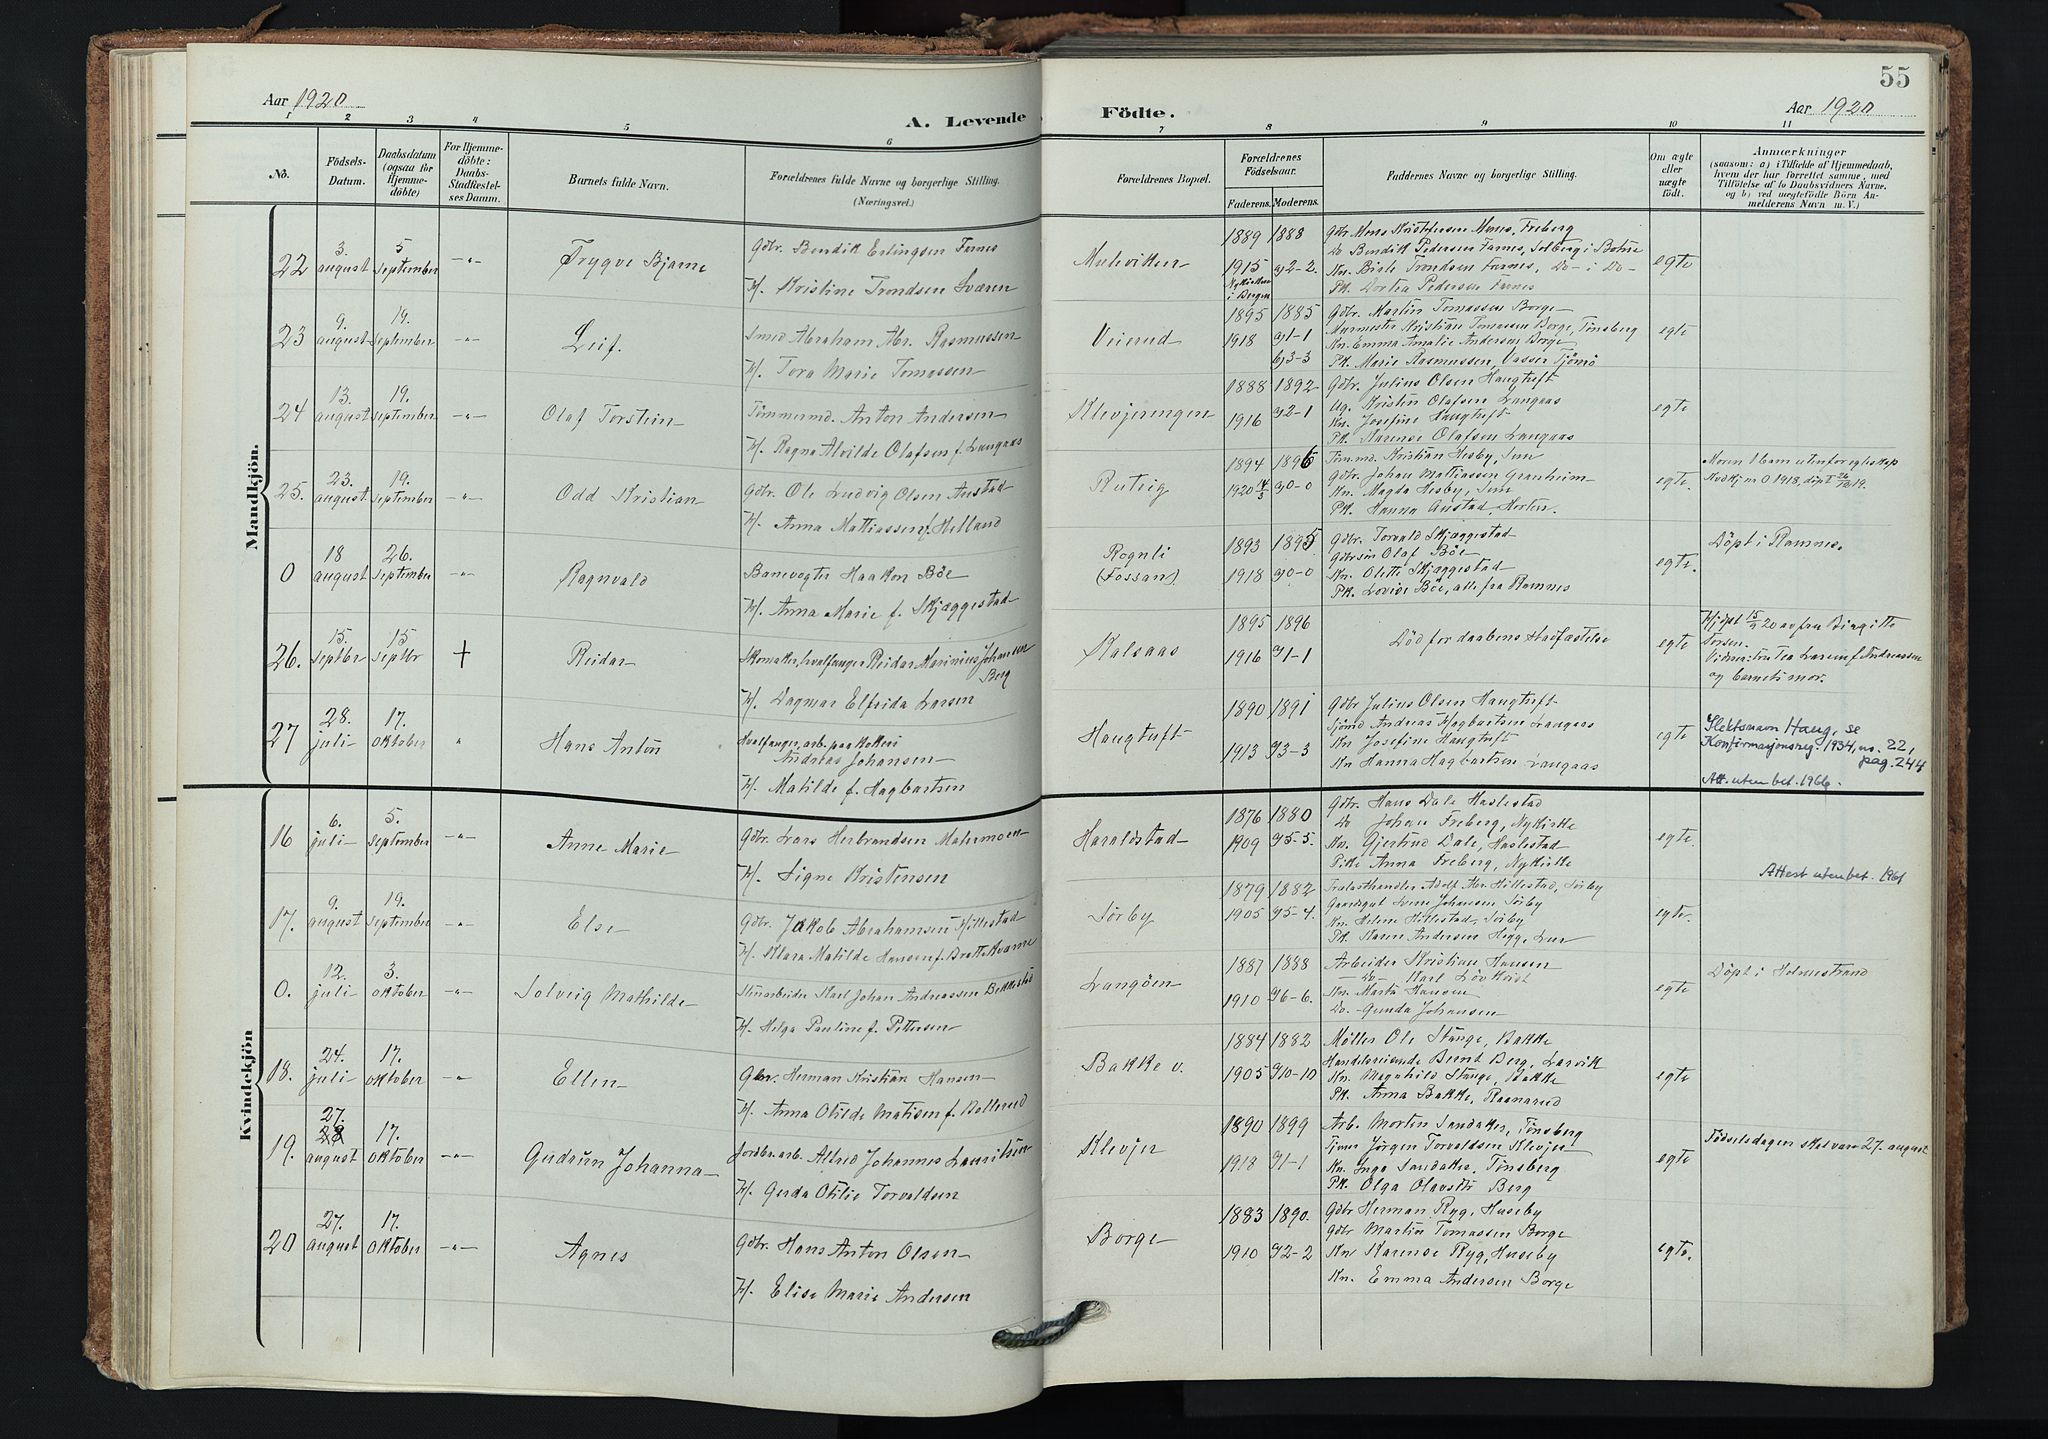 55
Aar 1920
A. Levende Födte.
Aar 1920
1 2 3 4 5 6 7 8 9 10 11
No.
Födsels-
Datum.
Daabsdatum
(ogsaa for
Hjemme-
döbte)
For Hjemme-
döbte:
Daabs-
Stadfæstel-
ses Datum.
Barnets fulde Navn.
Forældrenes fulde Navne og borgerlige Stilling.
(Næringsvei.)
Forældrenes Bopæl.
Forældrenes
Födselsaar.
Faderens. Moderens.
Faddernes Navne og borgerlige Stilling.
Om ægte
eller
uægte
födt.
Anmærkninger
(saasom: a) i Tilfælde af Hjemmedaab,
hvem der har forrettet samme, med
Tilföielse af to Daabsvidners Navne,
og b) ved uægtefödte Börn An-
melderens Navn m. V.)
Mandkjön.
22 3. august 5 september -"- Trygve Bjarne
Gdbr. Bendik Erlingsen Farnes
H/. Kristine Trondsen Sværen
Mulevikken
1889 1888
1915 g2-2.
Nykirken
i Bergen
Gdbr Mons Kristofersen Mones, Freberg
Do Bendik Pedersen Farnes, Solberg i Botne
Kn. Birte Trondsen Farnes, Do- i Do-
Pk. Dortea Pedersen Farnes
egte
23 9. august 19. september -"- Leif.
Smed Abraham Abr. Rasmussen
H/. Tora Marie Tomassen
Veierud
1895 1885
1918 g1-1
b3-3
Gdbr. Martin Tomassen Borge
Murmester Kristian Tomassen Borge, Tönsberg
Kn. Emma Amalie Andersen Borge
Pk. Marie Rasmussen, Vasser Tjömö
egte
24 13. august 19. september -"- Olaf Torstein
Tömmermd. Anton Andersen
H/. Ragna Alvilde Olafsen f. Langaas
Klevjeringen
1888 1892
1916 g2-1
Gdbr. Julius Olsen Haugtuft
Ug. Kristin Olafsen Langaas
Kn. Josefine Haugtuft
Pk. Karense Olafsen Langaas
egte
25. 23. august 19. september -"- Odd Kristian
Gdbr. Ole Ludvig Olsen Austad
H/. Anna Mattiassen f. Helland
1894 1896
1920 g0-0
Tömmd. Kristian Hesby, Sem
Gdbr. Johan Mattiassen Granheim
Kn. Magda Hesby, Sem
Pk. Hanna Austad, Horten.
egte.
0 18 august 26. september -"- Ragnvald
Banevogter Haakon Böe
H/. Anna Marie f. Skjæggestad
Rognli
(Fossan)
1893 1895
1918 g0-0
Gdbr. Torvald Skjæggestad
Gdbrsön Olaf Böe
Kn. Olette Skjæggestad
Pk. Lovise Böe, alle fra Ramnes
egte.
Döpt i Ramnes.
26. 15. septbr 15 septbr + Reidar
Skomaker, hvalfanger Reidar Marinius Johansen
Berg
H/. Dagmar Elfrida Larsen
Kalsaas
1895 1896
1916 g1-1
Död for daabens stadfæstelse
egte
Hjdpt 15/9 20 av fru Birgitte
Torsen.
Vidner: fru Tea Larsen f. Andreassen
og barnets mor.
27 28. juli 17. oktober " Hans Anton
Hvalfanger, arb. paa kokeri
Andreas Johansen
H/. Matilde f. Hagbartsen
Haugtuft
1890 1891
1913 g3-3
Gdbr Julius Olsen Haugtuft
Sjömd Andreas Hagbartsen Langaas
Kn Josefine Haugtuft
Kn Hanna Hagbartsen Langaas
egte
Slektsnavn Haug, se
Konfirmasjonsreg. 1934, nr. 22,
pag. 244
Att. uten bet. 1966.
Kvindekjön
16 6. juli 5. september -"- Anne Marie
Gdbr. Lars Herbrandsen Mehrmoen
H/. Signe Kristensen
Haraldstad
1876 1880
1909 g5-5.
Gdbr. Hans Dale Haslestad
Do Johan Freberg, Nykirke
Kn. Gjertrud Dale, Haslestad
Pike Anna Freberg, Nykirke
egte.
Attest uten bet. 1961
17. 9. august 19. september -"- Else
Gdbr. Jakob Abrahamsen Hillestad
H/. Klara Matilde Hansen f. Brattekvarne
Sörby
1879 1882
1905 g5-4.
Trælasthandler Adolf Abr. Hillestad, Sörby
Gaardsgut Sven Johansen Sörby
Kn. Helene Hillestad, Sörby
Pk. Karen Andersen Hegg, Lur
egte.
0. 12. juli 3. oktober -"- Solveig Mathilde
Stenarbeider Karl Johan Andreassen Bekkestö
H/. Helga Pauline f. Pettersen
Langöen
1887 1888
1910 g6-6.
Arbeider Kristian Hansen
-Do- Karl Lövkvist
Kn. Marta Hansen
Do- Gunda Johansen
egte
Döpt i Holmestrand
18. 24. juli 17. oktober -"- Ellen
Gbr. Herman Kristian Hansen
H/. Anna Otilde Matisen f. Bollerud
Bakke v.
1884 1882
1905 g10-10
Möller Ole Stange, Bakke
Handelsreisende Bernt Berg, Larvik
Kn. Magnhild Stange, Bakke
Pk. Anna Bakke, Ramnerud
egte
19. 27. 28 august 17. oktober -"- Gudrun Johanna
Jordbr. arb. Alfred Johannes Lauritsen
H/. Gerda Otilie Torvaldsen
Klevjer
1890 1899
1918 g1-1
Arb. Morten Sandaker, Tönsberg
Tjener Jörgen Torvaldsen Klevjer
Kn. Inga Sandaker, Tönsberg
Pk. Olga Olavsdtr Berg
egte
Födselsdagen skal være 27. august
20 27. august 17. oktober -"- Agnes
Gdbr. Hans Anton Olsen
H/. Elise Marie Andersen
Borge
1883 1890.
1910 g2-2
Gdbr Herman Ryg, Huseby
Gdbr Martin Tomassen Borge
Kn Karense Ryg, Huseby
Kn. Emma Andersen Borge
egte.